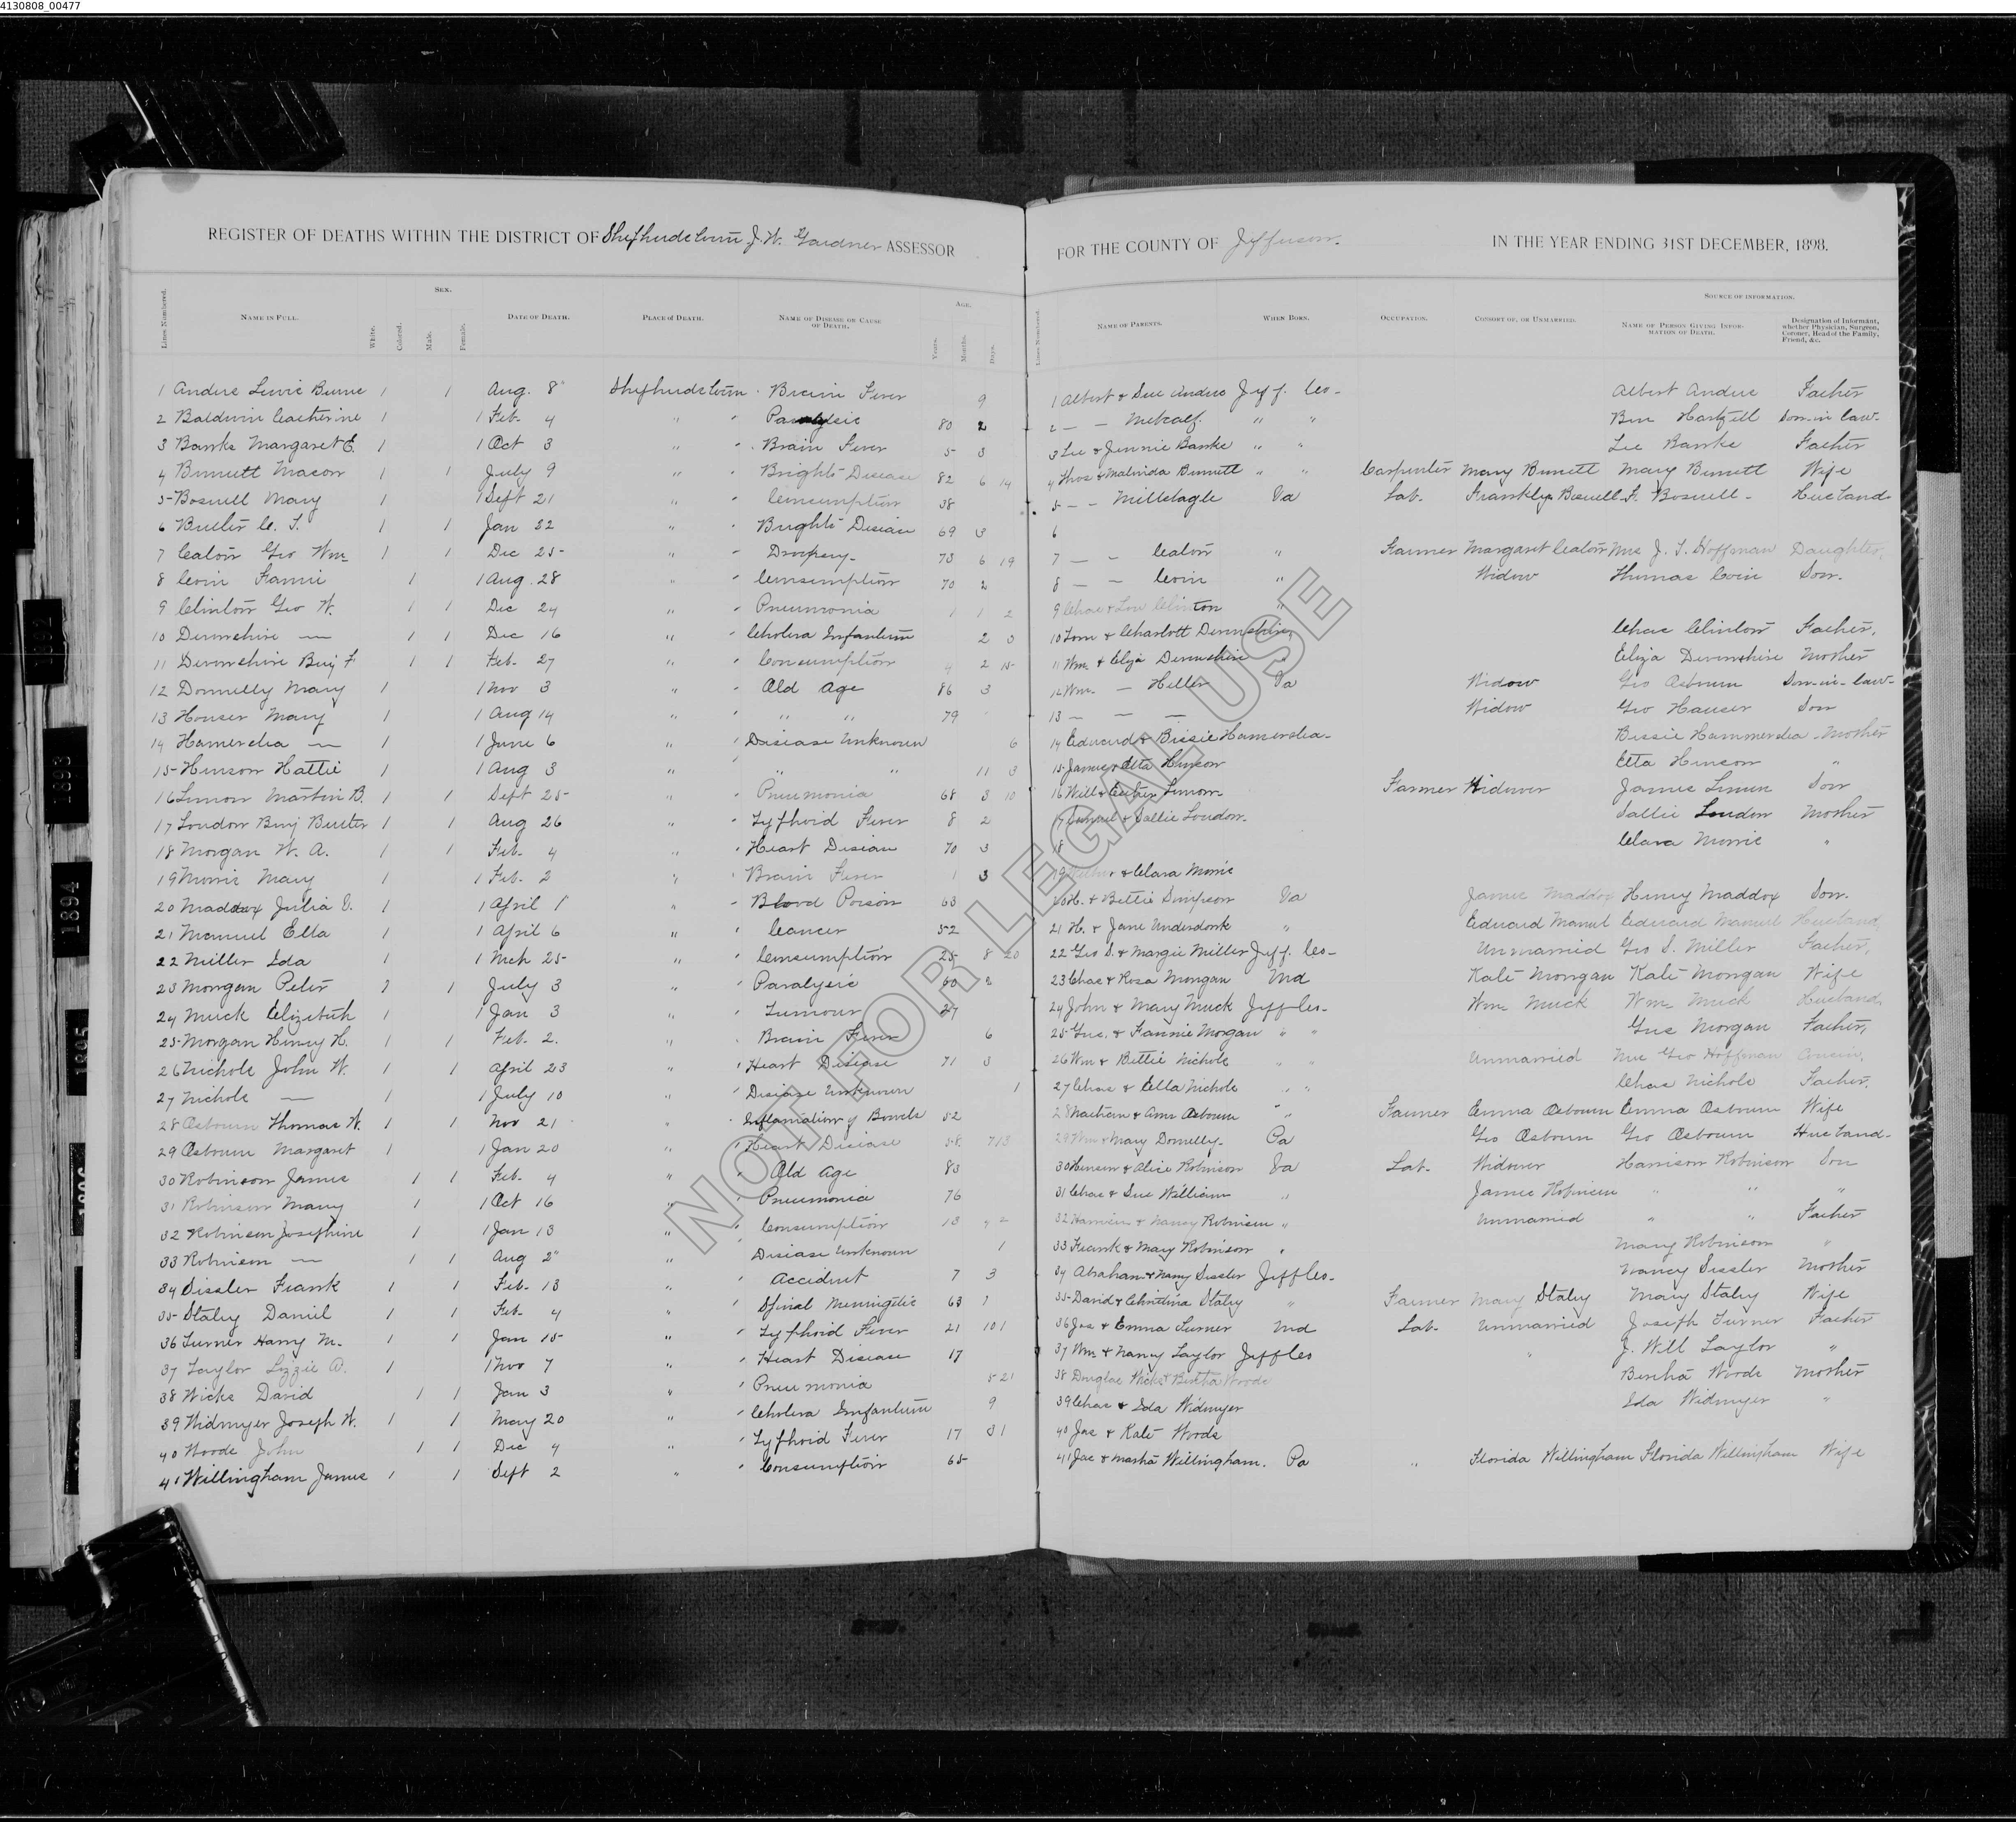 4130808_00477
REGISTER OF DEATHS WITHIN THE DISTRICT OF Shepherdstown J. W. Gardner ASSESSOR
FOR THE COUNTY OF Jefferson. IN THE YEAR ENDING 31ST DECEMBER, 1898.
Lines Numbered. NAME IN FULL. White. Colored. SEX. Male. Female. DATE OF DEATH. PLACE OF DEATH. NAME OF DISEASE OR CAUSE OF DEATH. AGE. Years. Months. Days.
Lines Numbered. NAME OF PARENTS. WHEN BORN. OCCUPATION. CONSORT OF, OR UNMARRIED. SOURCE OF INFORMATION. NAME OF PERSON GIVING INFORMATION OF DEATH. Designation of Informant, whether Physician, Surgeon, Coroner, Head of the Family, Friend, &c.
1 Anders 1 1 Aug. 8" Shepherdstown Brain Fever 9 1 Albert & Sue Anders Jeff. Co- Albert Anders Father
2 Baldwin Catherine 1 1 Feb. 4 " " Paralysis 80 2 2 — — Metcalf. " " Ben Hartzell Son-in law-
3 Banks Margaret E. 1 1 Oct 3 " " Brain Fever 5 3 3 Lee & Jennie Banks " " Lee Banks Father
4 Bennett Macon 1 1 July 9 " " Brights Disease 82 6 14 4 Thos & Malinda Bennett " " Carpenter Mary Bennett Mary Bennett Wife
5 Boswell Mary 1 1 Sept 21 " " Consumption 38 5 — — Millslagle Va Lab. Franklyn Boswell F. Boswell - Husband
6 Butler C. T. 1 1 Jan " " Brights Disease 69 3 6
7 Caton Geo Wm 1 1 Dec 25 " " Dropsy 73 6 19 7 — — Caton " Farmer Margaret Caton Mrs J. T. Hoffman Daughter,
8 Fannie 1 1 Aug. 28 " " Consumption 70 2 8 — — " Widow Thomas Son.
9 Clinton Geo W. 1 1 Dec 24 " " Pneumonia 1 1 2 9 Chas & Lou Clinton "
10 Devonshire — 1 1 Dec 16 " " Cholera Infantum 2 3 10 Tom & Charlott Devonshire, Chas Clinton Father,
11 Devonshire Benj F 1 1 Feb. 27 " " Consumption 4 2 15 11 Wm. & Eliza Devonshire Eliza Devonshire Mother
12 Donnelly Mary 1 1 Nov 3 " " Old Age 86 3 12 Wm. — Heller Va Widow Geo Osbourn Son-in-law-
13 Houser Mary 1 1 Aug 14 " " " " 79 13 — — — Widow Geo Hauser Son
14 Hamersla — 1 1 June 6 " " Disease Unknown 6 14 Edward & Bessie Hamersla- Bessie Hammersla Mother
15 Henson Hattie 1 1 Aug 3 " " " 11 3 15 James & Etta Henson Etta Henson "
16 Lemon Martin B. 1 1 Sept 25 " " Pneumonia 68 3 10 16 Will & Lemon Farmer Widower James Lemon Son
17 London Benj Butler 1 1 Aug 26 " " Typhoid Fever 8 2 17 Samuel & Sallie London. Sallie London Mother
18 Morgan W. A. 1 1 Feb. 4 " " Heart Disease 70 3 18 Clara Morris "
19 Morris Mary 1 1 Feb. 2 " " Brain Fever 1 3 19 & Clara Morris
20 Maddox Julia 1 1 April 1 " " Blood Poison 63 20 H. & Bettie Simpson Va James Maddox Henry Maddox Son.
21 Manuel Ella 1 1 April 6 " " Cancer 52 21 H. & Jane Underdonk " Edward Manuel Edward Manuel Husband,
22 Miller Ida 1 1 Mch 25 " " Consumption 25 8 20 22 Geo S. & Margie Miller Jeff. Co- Unmarried Geo S. Miller Father,
23 Morgan Peter 1 1 July 3 " " Paralysis 60 2 23 Chas & Rosa Morgan Md Kate Morgan Kate Morgan Wife
24 Muck Elizabeth 1 1 Jan 3 " " Tumour 27 24 John & Mary Muck Jeff Co- Wm Muck Wm Muck Husband,
25 Morgan Henry H. 1 1 Feb. 2. " " Brain Fever 6 25 Gus. & Fannie Morgan " " Gus Morgan Father,
26 Nichols John W. 1 1 April 23 " " Heart Disease 71 3 26 Wm & Bettie Nichols " " Unmarried Mrs Geo Hoffman Cousin,
27 Nichols — 1 1 July 10 " " Disease Unknown 1 27 Chas & Ella Nichols " " Chas Nichols Father,
28 Osbourn Thomas W. 1 1 Nov 21 " " Inflamation of Bowels 52 28 Nathan & Ann Osbourn " " Farmer Emma Osbourn Emma Osbourn Wife
29 Osbourn Margaret 1 1 Jan 20 " " Heart Disease 58 7 13 29 Wm & Mary Donnelly- Pa Geo Osbourn Geo Osbourn Husband-
30 Robinson James 1 1 Feb. 4 " " Old Age 83 30 Henson & Alice Robinson Va Lab. Widower Harrison Robinson Son
31 Robinson Mary 1 1 Oct 16 " " Pneumonia 76 31 Chas & Sue William " James Robinson " " "
32 Robinson Josephine 1 1 Jan 13 " " Consumption 13 32 Harrison & Nancy Robinson " Unmarried " " Father
33 Robinson — 1 1 Aug 2" " Disease Unknown 1 33 Frank & Mary Robinson " Mary Robinson "
34 Sissler Frank 1 1 Feb. 13 " " Accident 7 3 34 Abraham & Nancy Sissler Jeff Co- Nancy Sissler Mother
35 Staley Daniel 1 1 Feb. 4 " " Spinal Meningitis 63 1 35 David & Christina Staley " Farmer Mary Staley Mary Staley Wife
36 Turner Harry M. 1 1 Jan 15 " " Typhoid Fever 21 10 1 36 Jos & Emma Turner Md Lab. Unmarried Joseph Turner Father
37 Taylor Lizzie 1 1 Nov 7 " " Heart Disease 17 37 Wm & Nancy Taylor Jeff Co " J. Will Taylor "
38 Wicks David 1 1 Jan 3 " " Pneumonia 5 21 38 Douglas Wicks & Bertha Woods Bertha Woods Mother
39 Widmyer Joseph W. 1 1 May 20 " " Cholera Infantum 9 39 Chas & Ida Widmyer Ida Widmyer "
40 Woods John 1 1 Dec 4 " " Typhoid Fever 17 3 1 40 Jas & Kate Woods
41 Willingham James 1 1 Sept 2 " " Consumption 65 41 Jas & Martha Willingham. Pa " Florida Willingham Florida Willingham Wife
NOT FOR LEGAL USE
1892
1893
1894
1895